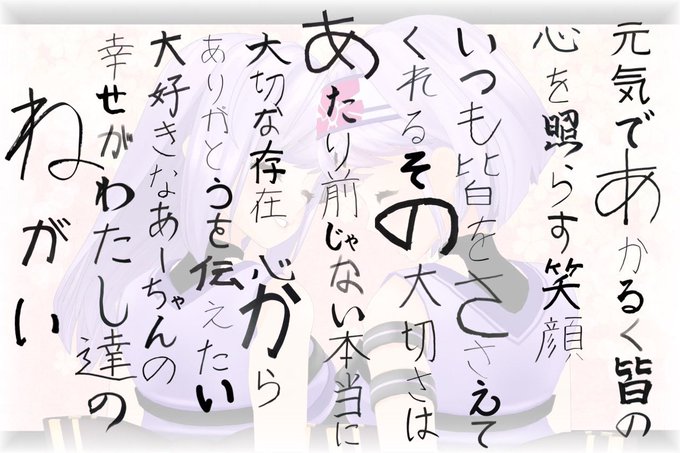 元気であかるく皆の
心を照らす笑顔
いつも皆をささえて
くれるその大切さは
あたり前じゃない本当に
大切な存在 心から
ありがとうを伝えたい
大好きなあーちゃんの
幸せがわたし達の
ねがい